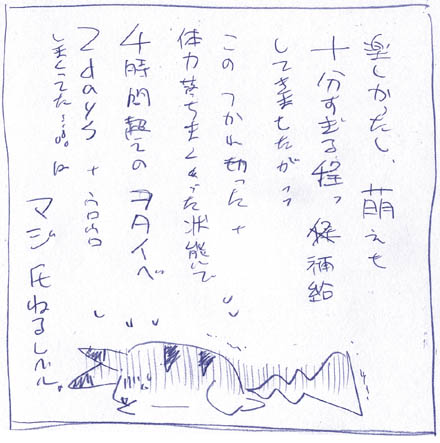 楽しかったし、萌えも
十分すぎる程っ 補給
してきましたがっっ
このつかれ切った +
体力落ちまくった状態で
4時間超えのヲタイベ
2days +
しまくってた…。は
マジ 死ねるレベル。